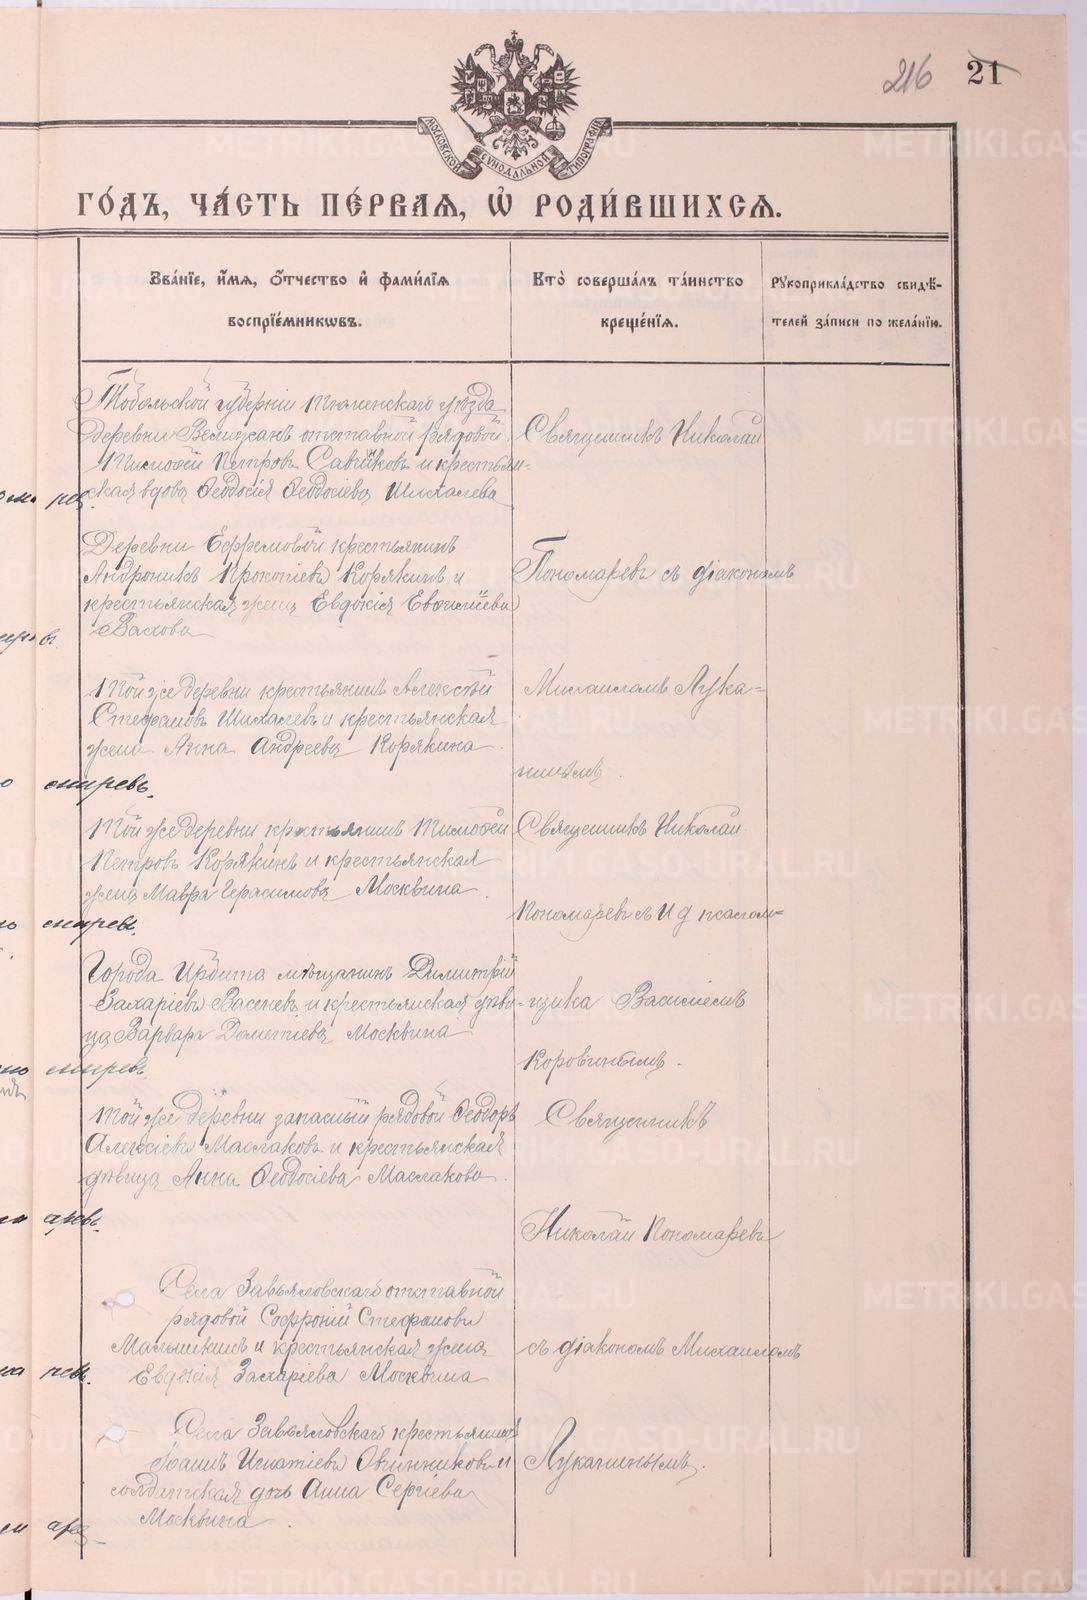 216 21
МОСКОВСКОЙ СѴНОДАЛЬНОЙ ТИПОГРАФІИ
ГО́ДЪ, ЧА́СТЬ ПЕ́РВАѦ, Ѡ҆ РОДИ́ВШИХСѦ.
Зва́нїе, и҆́мѧ, Ѻ҆́тчество и҆ фами́лїѧ
воспрїе́мникѡвъ.
Кто̀ соверша́лъ та́инство
креще́нїѧ.
Рꙋкоприкла́дство свидѣ́-
телей за́писи по жела́нїю.
Тобольской губерніи Тюменскаго уѣзда
деревни Велижанъ отставной рядовой
Тимофей Петровъ Савчиковъ и крестьян-
ская вдова Ѳеодосія Ѳеодосіева Шихалева
Священникъ Николай
Деревни Ефремовой крестьянинъ
Андроникъ Прокопіевъ Корякинъ и
крестьянская жена Евдокія Евсиліева
Вахова
Пономаревъ съ діакономъ
Той же деревни крестьянинъ Алексѣй
Стефановъ Шихалевъ и крестьянская
жена Анна Андреева Корякина
Михаиломъ Лука=
нинымъ.
Той же деревни крестьянинъ Тимофей
Петровъ Корякинъ и крестьянская
жена Мавра Герасимова Москвина
Священникъ Николай
Пономаревъ съ И д псалом=
Города Ирбита мѣщанинъ Димитрій
Захаріевъ Васеневъ и крестьянская дѣви-
ца Варвара Дометіева Москвина
щика Василіемъ
Коровинымъ.
Той же деревни запасный рядовой Ѳеодоръ
Алексіевъ Маслаковъ и крестьянская
дѣвица Анна Ѳеодосіева Маслакова
Священникъ
Николай Пономаревъ
Села Завьяловскаго отставной
рядовой Софроній Стефановъ
Малышкинъ и крестьянская жена
Евдокія Захаріева Москвина
съ діакономъ Михаиломъ
Села Завьяловскаго крестьянинъ
Іоаннъ Игнатіевъ Овчинниковъ и
солдатская дочь Анна Сергіева
Москвина.
Луканинымъ.